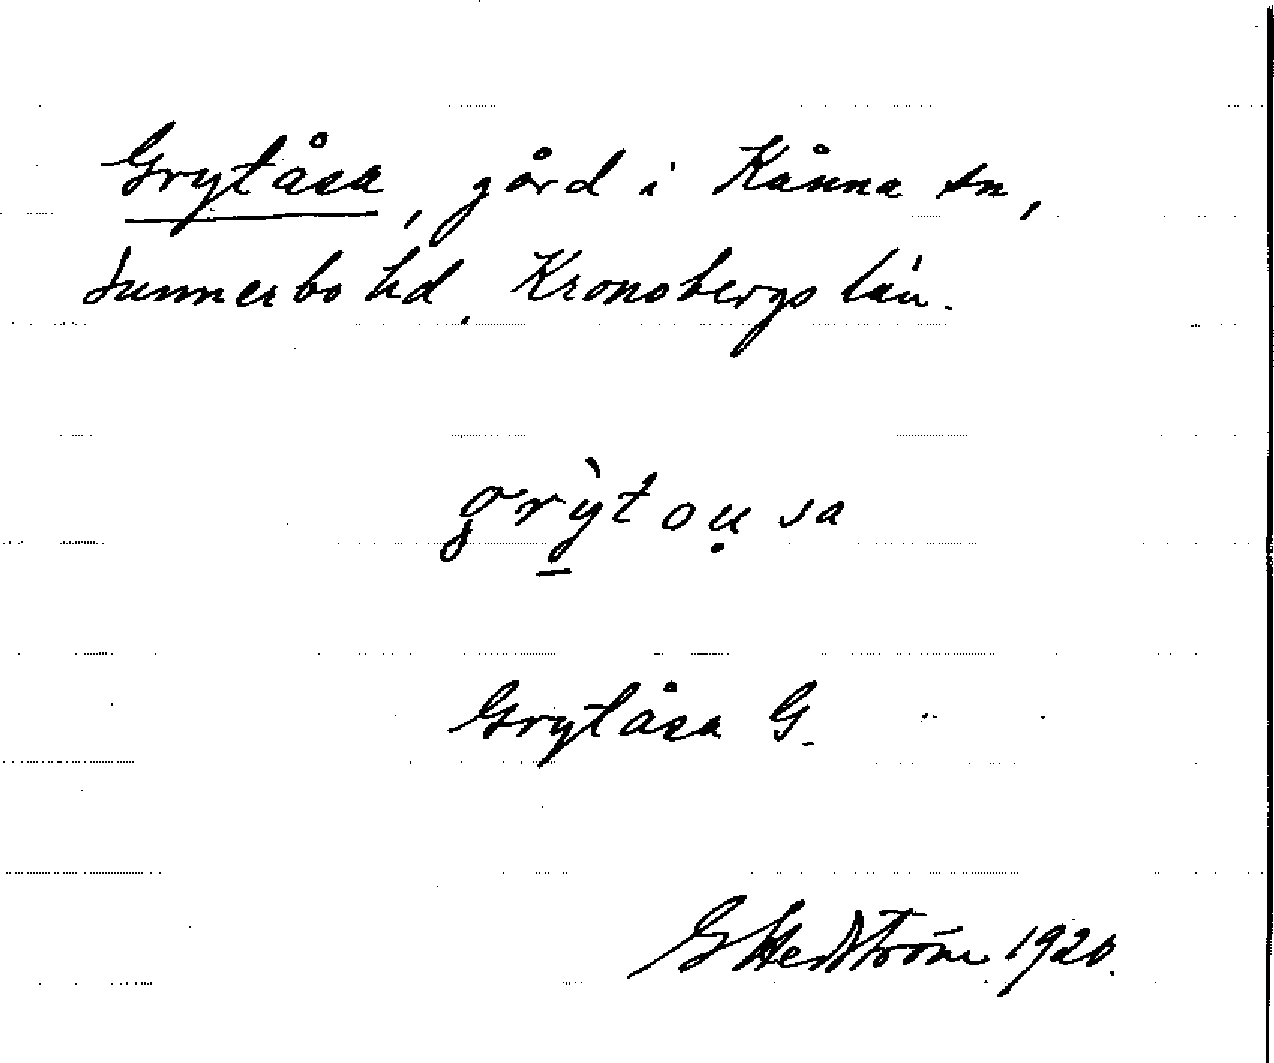 Grytåsa, gård i Kånna sn,
Sunnerbo hd, Kronobergs län.
grỳtoụsa
Grytåsa G.
G Hedström 1920.